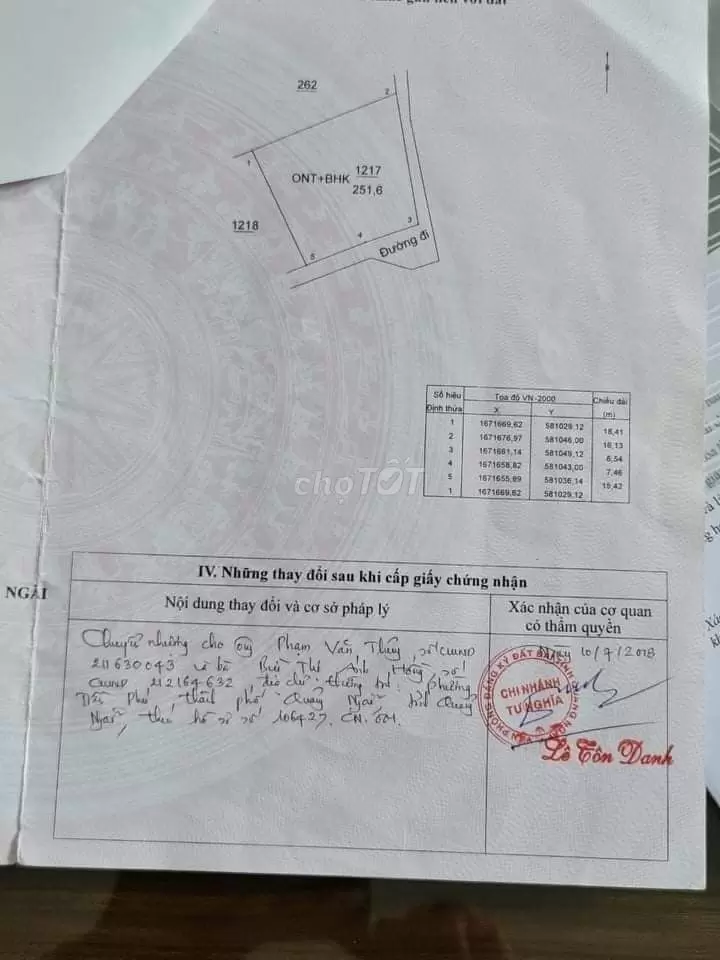 262
2
1
ONT+BHK 1217
251,6
1218
3
4
5
Đường đi
Số hiệu Đỉnh thửa Tọa độ VN-2000 Chiều dài (m)
X Y
1 1671669,62 581029,12
18,41
2 1671676,97 581046,00
16,13
3 1671661,14 581049,12
6,54
4 1671658,82 581043,00
7,46
5 1671655,69 581036,14
15,42
1 1671669,62 581029,12
chợTỐT
NGÃI
IV. Những thay đổi sau khi cấp giấy chứng nhận
Nội dung thay đổi và cơ sở pháp lý
Xác nhận của cơ quan
có thẩm quyền
Chuyển nhượng cho ông Phạm Văn số CMND
211630043 và bà Bùi Thị Ánh Hồng số
CMND 212164632 địa chỉ: thường trú: phường
phố thành phố Quảng Ngãi tỉnh Quảng
Ngãi, theo hồ sơ số 106427.CN.001.
Ngày 10/7/2018
CHI NHÁNH
TƯ NGHĨA
Lê Tôn Danh